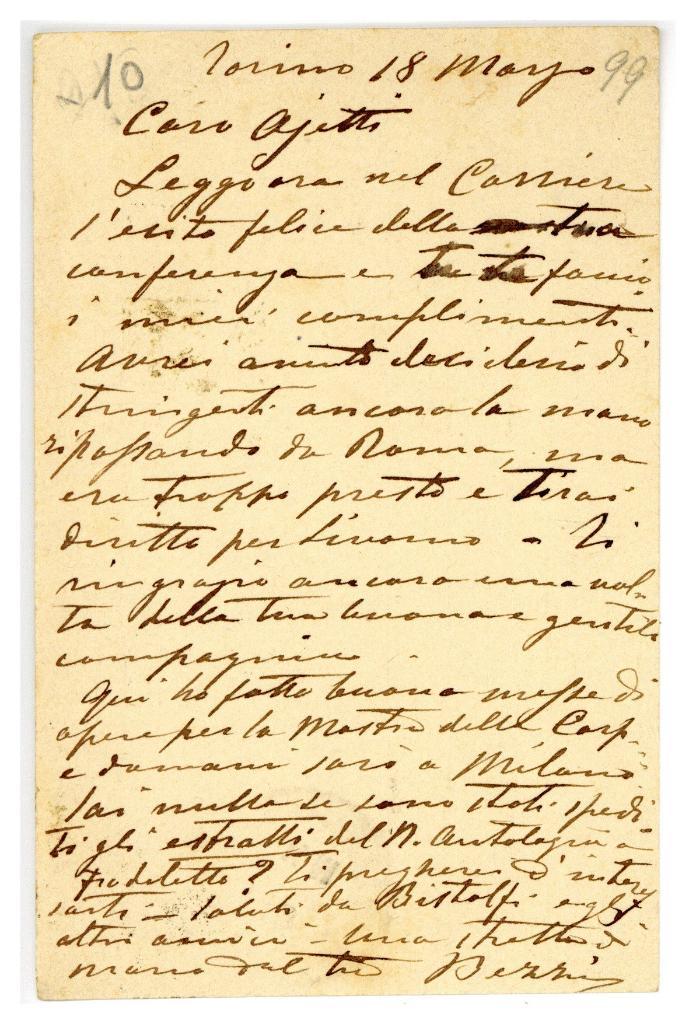 10 99
Torino 18 Marzo
Caro Ojetti
Leggo ora nel Corriere
l'esito felice della tua
conferenza e te ne faccio
i miei complimenti.
Avrei avuto desiderio di
stringerti ancora la mano
ripassando da Roma, ma
era troppo presto e tirai
diritto per Livorno - Ti
ringrazio ancora una vol-
ta della tua buona e gentile
compagnia.
Qui ho fatto buona messe di
opere per la Mostra della
e domani sarò a Milano
Sai nulla se sono stati spedi
ti gli estratti del N. Antologia a
Fradeletto? Ti pregherei d'interes
sarti - Saluti da Bistolfi e gli
altri amici - Una stretta di
mano dal tuo Bezzi